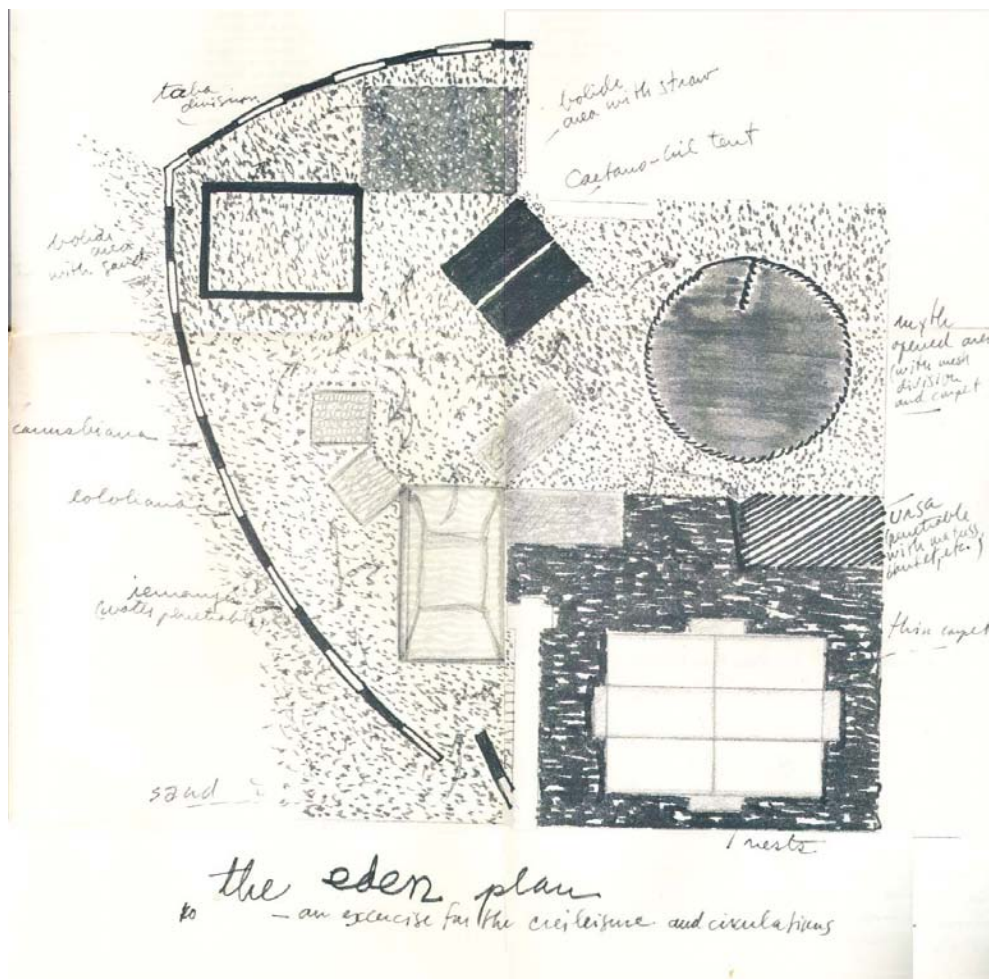 taba
division
bolide
area with straw
Caetano-Gil tent
bolide
area
with sand
myth
opened area
(with mesh
division
and carpet
cannabiana
lololiana
iemanjá
(water penetrable)
Ursa
(penetrable
with matress,
etc.)
thin carpet
sand
nests
the eden plan
— an exercise for the creileisure and circulations